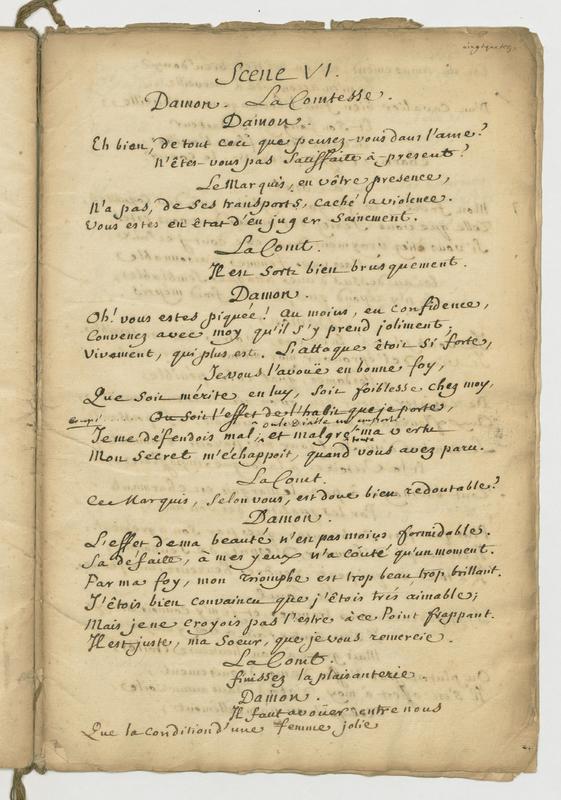 Scene VI.
Damon. La Comtesse.
Damon.
Eh bien, de tout ceci que pensez-vous dans l'ame?
N'êtes-vous pas Satisfaite à present?
Le Marquis, en vôtre presence,
N'a pas, de ses transports, caché la violence.
Vous estes en êtat d'en juger Sainement.
La Comt.
Il est Sorti bien brusquement.
Damon.
Oh! vous estes piquée! au moins, en confidence,
Convenez avec moy qu'il s'y prend joliment;
Vivement, qui plus est. L'attaque êtoit Si forte,
Je vous l'avoüe en bonne foy,
Que Soit mérite en luy, Soit foiblesse chez moy,
Ou Soit l'effet de l'habit que je porte,
ou le Diable m'emporte
Je me défendois mal, et malgré ma vertu
Mon Secret m'échappoit, quand vous avez paru.
La Comt.
Ce Marquis, Selon vous, est donc bien redoutable?
Damon.
L'effet de ma beauté n'est pas moins formidable.
Sa défaite, à mes yeux n'a couté qu'un moment.
Par ma foy, mon Triomphe est trop beau, trop brillant.
J'êtois bien convaincu que j'êtois trés aimable;
Mais je ne croyois pas l'estre à ce Point frappant.
Il est juste, ma Soeur, que je vous remercie.
La Comt.
finissez la plaisanterie
Damon.
Il faut avoüer entre nous
Que la condition d'une femme jolie